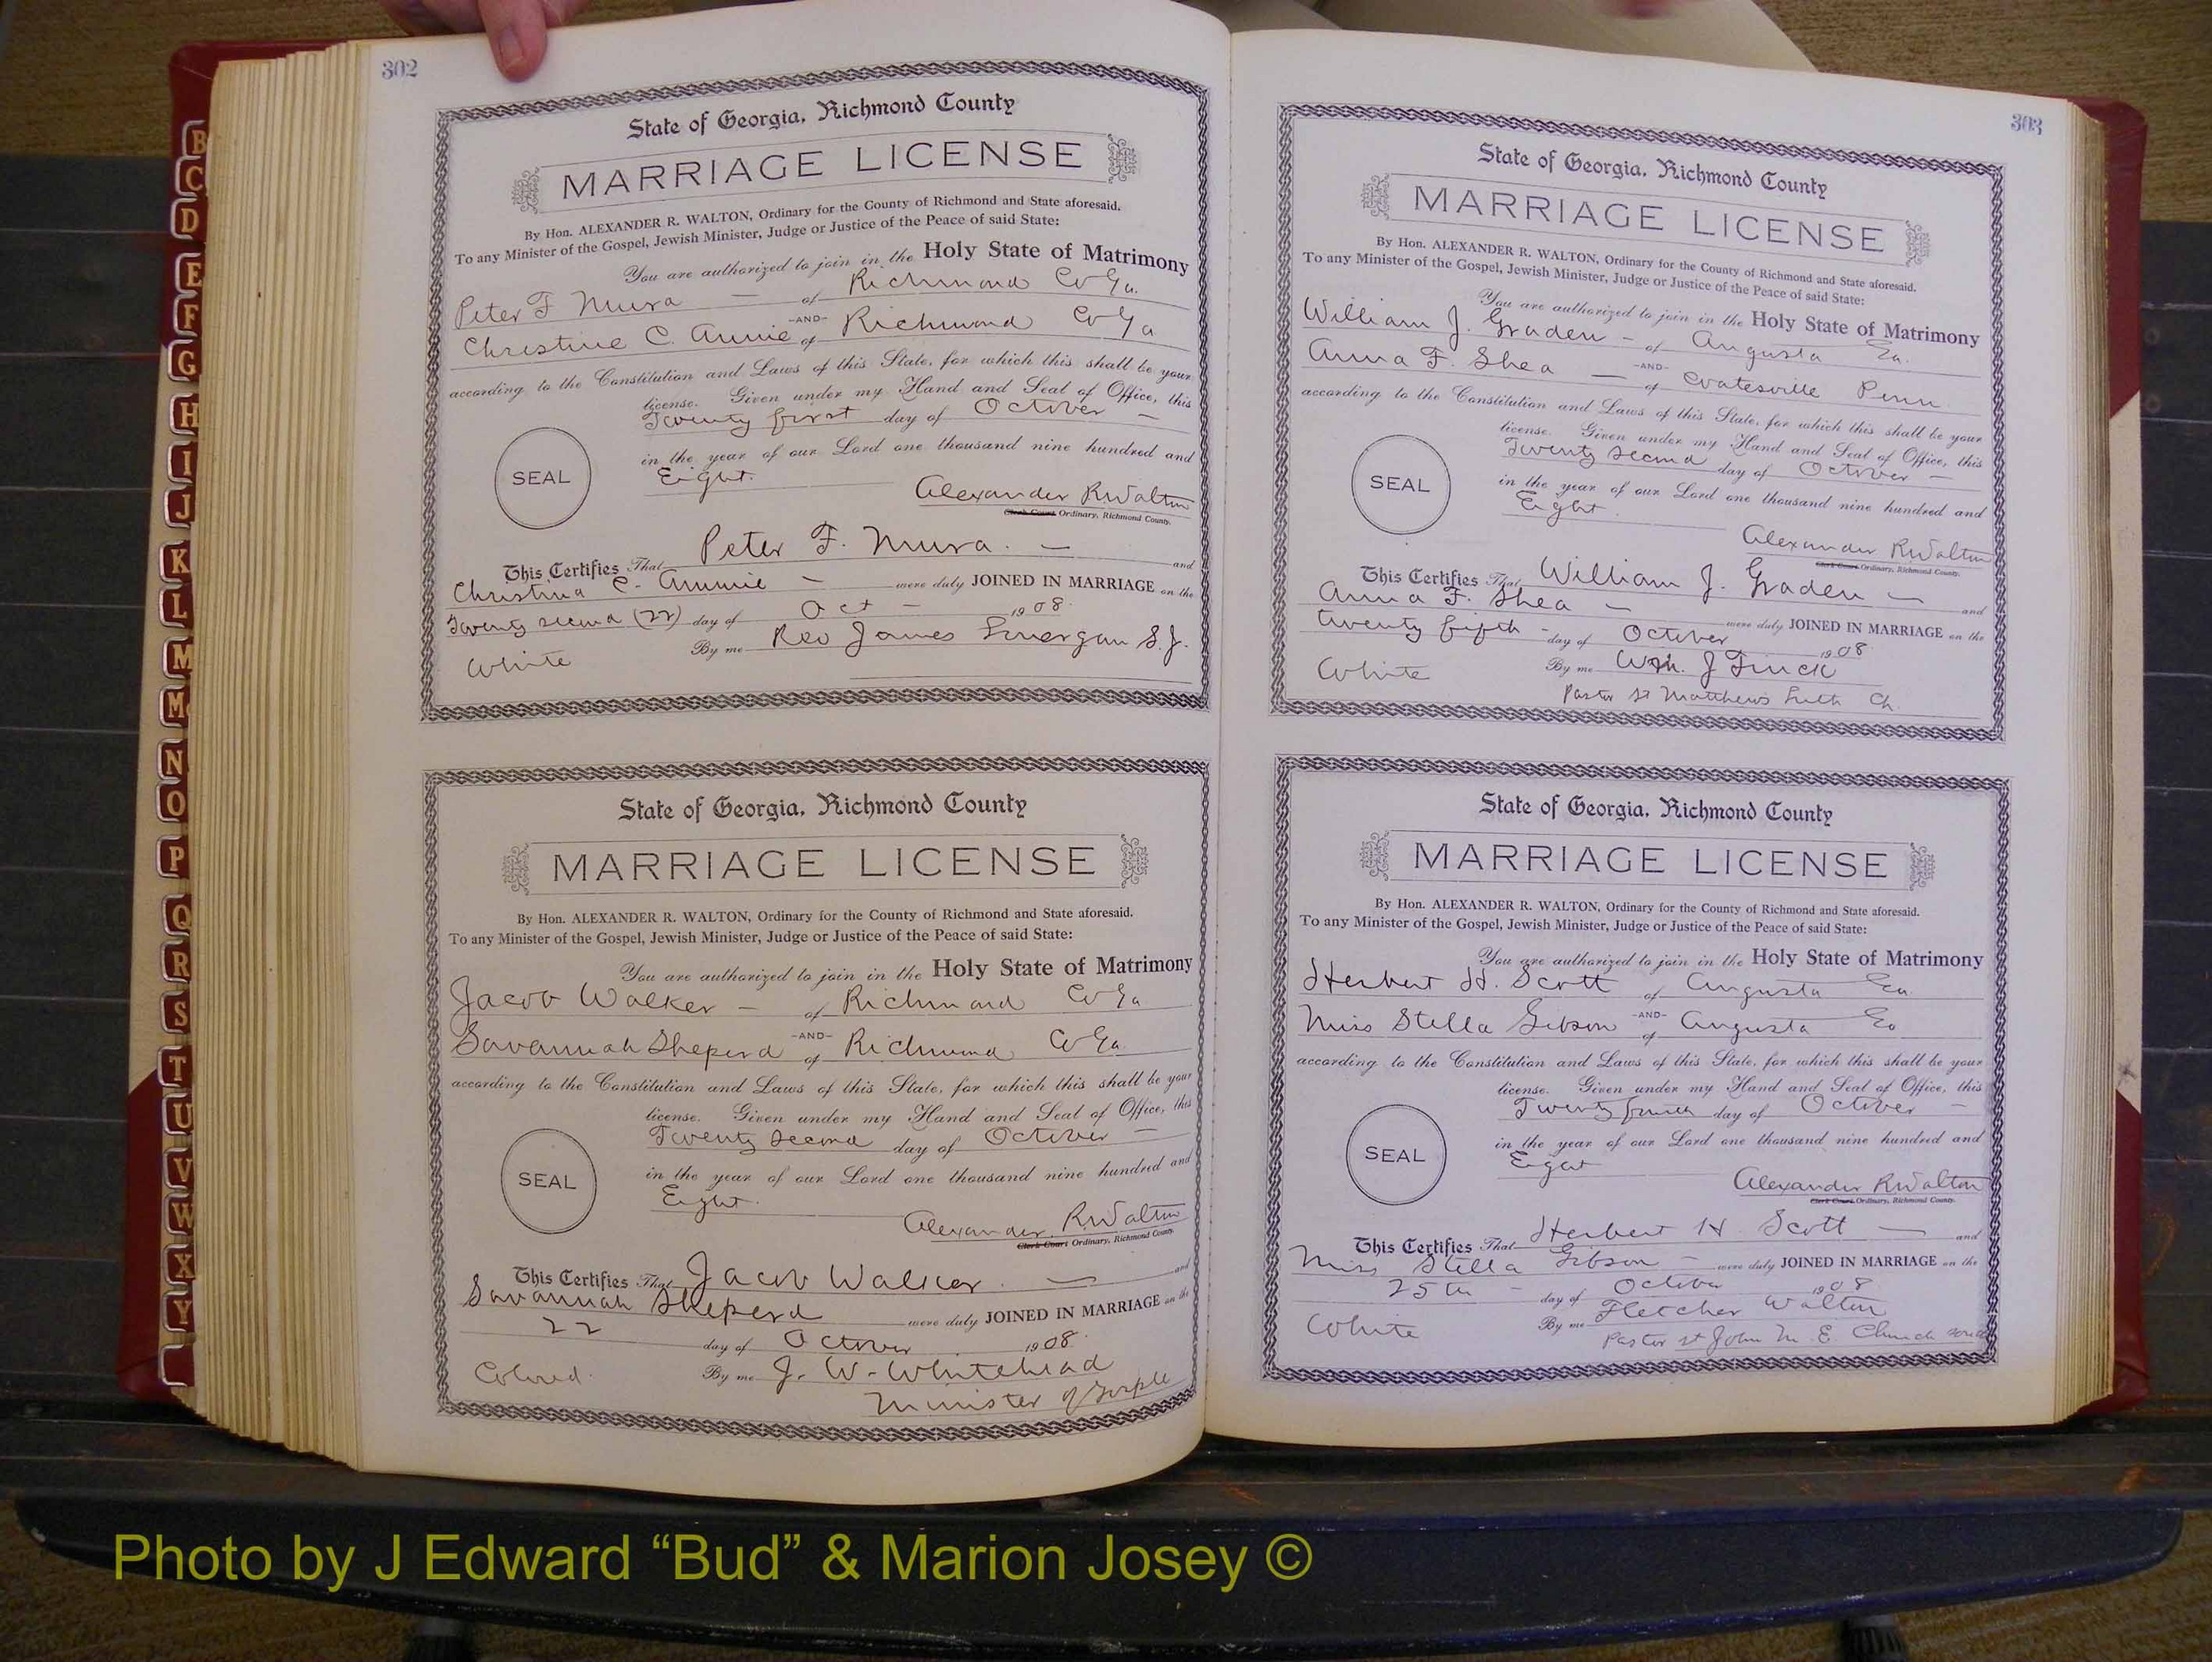 302
State of Georgia, Richmond County
MARRIAGE LICENSE
By Hon. ALEXANDER R. WALTON, Ordinary for the County of Richmond and State aforesaid.
To any Minister of the Gospel, Jewish Minister, Judge or Justice of the Peace of said State:
You are authorized to join in the Holy State of Matrimony
Peter F Mura — of Richmond Co Ga.
-AND-
Christine C. Annie of Richmond Co Ga
according to the Constitution and Laws of this State, for which this shall be your
license. Given under my Hand and Seal of Office, this
Twenty first day of October —
in the year of our Lord one thousand nine hundred and
SEAL
Eight.
Alexander R Walton
Clerk Court Ordinary, Richmond County.
This Certifies That Peter F. Mura. — and
Christina C. Annie — were duly JOINED IN MARRIAGE on the
Twenty second (22) day of Oct — 1908.
By me Rev James S.J.
White
State of Georgia, Richmond County
MARRIAGE LICENSE
By Hon. ALEXANDER R. WALTON, Ordinary for the County of Richmond and State aforesaid.
To any Minister of the Gospel, Jewish Minister, Judge or Justice of the Peace of said State:
You are authorized to join in the Holy State of Matrimony
Jacob Walker — of Richmond Co Ga
-AND-
Savannah Sheperd of Richmond Co Ga.
according to the Constitution and Laws of this State, for which this shall be your
license. Given under my Hand and Seal of Office, this
Twenty second day of October —
in the year of our Lord one thousand nine hundred and
SEAL
Eight.
Alexander R Walton
Clerk Court Ordinary, Richmond County.
This Certifies That Jacob Walker. — and
Savannah Sheperd were duly JOINED IN MARRIAGE on the
22 day of October 1908.
Colored. By me J. W. Whitehead
Minister of Gosple
303
State of Georgia, Richmond County
MARRIAGE LICENSE
By Hon. ALEXANDER R. WALTON, Ordinary for the County of Richmond and State aforesaid.
To any Minister of the Gospel, Jewish Minister, Judge or Justice of the Peace of said State:
You are authorized to join in the Holy State of Matrimony
William J. Graden — of Augusta Ga.
-AND-
Anna F. Shea — of Coatesville Penn
according to the Constitution and Laws of this State, for which this shall be your
license. Given under my Hand and Seal of Office, this
Twenty second day of October —
in the year of our Lord one thousand nine hundred and
SEAL
Eight
Alexander R Walton
Clerk Court Ordinary, Richmond County.
This Certifies That William J. Graden — and
Anna F. Shea — were duly JOINED IN MARRIAGE on the
twenty fifth — day of October 1908.
White By me Wm. J Finck
Pastor St Matthews Luth Ch.
State of Georgia, Richmond County
MARRIAGE LICENSE
By Hon. ALEXANDER R. WALTON, Ordinary for the County of Richmond and State aforesaid.
To any Minister of the Gospel, Jewish Minister, Judge or Justice of the Peace of said State:
You are authorized to join in the Holy State of Matrimony
Herbert H. Scott of Augusta Ga.
-AND-
Miss Stella Gibson of Augusta Ga
according to the Constitution and Laws of this State, for which this shall be your
license. Given under my Hand and Seal of Office, this
Twenty fourth day of October —
in the year of our Lord one thousand nine hundred and
SEAL
Eight
Alexander R Walton
Clerk Court Ordinary, Richmond County.
This Certifies That Herbert H. Scott — and
Miss Stella Gibson — were duly JOINED IN MARRIAGE on the
25th — day of October 1908
White By me Fletcher Walton
Pastor St John M. E. Church South
B
C
D
E
F
G
H
I
J
K
L
M
Mc
N
O
P
Q
R
S
T
U
V
W
X
Y
Photo by J Edward “Bud” & Marion Josey ©